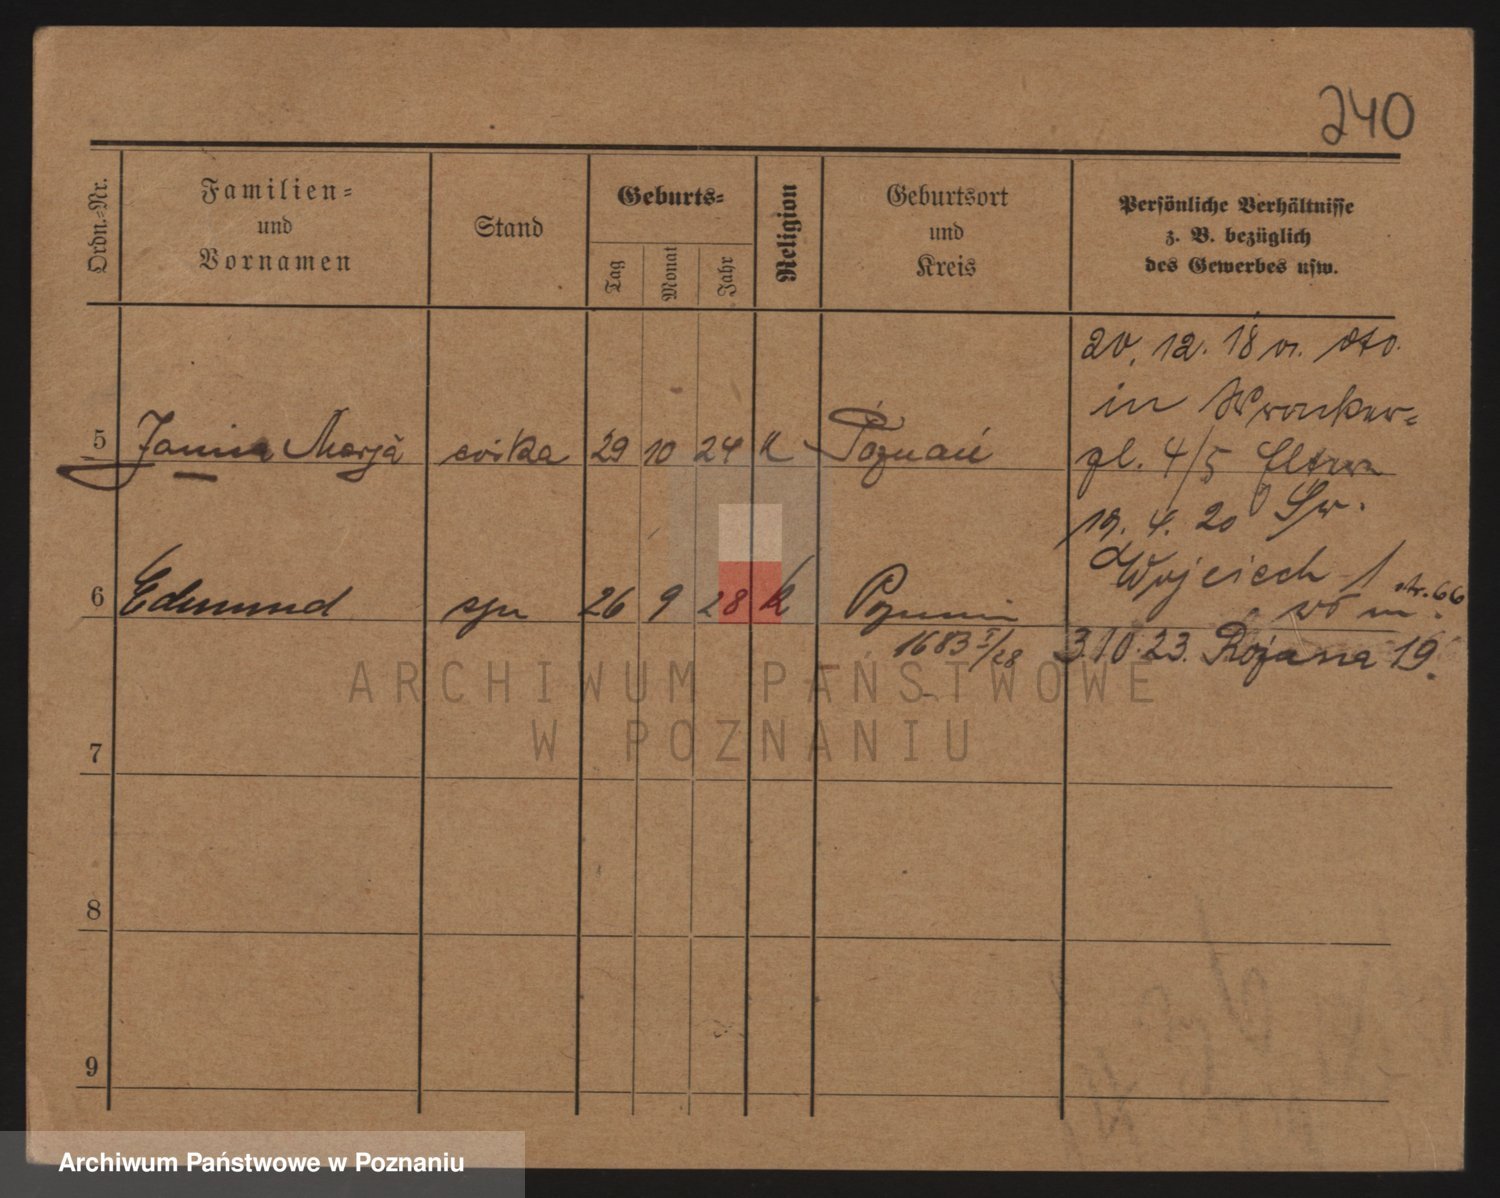 240
Ordn.-Nr.
Familien-
und
Vornamen
Stand
Geburts-
Tag
Monat
Jahr
Religion
Geburtsort
und
Kreis
Persönliche Verhältnisse
z. B. bezüglich
des Gewerbes usw.
20. 12. 18 v.
in Wronker-
pl. 4/5 Eltern
5 Janina Marja córka 29 10 24 K Poznań
19. 4. 20 Św.
Wojciech 1
str. 66
6 Edmund syn 26 9 28 K Poznań
1683 I/28
3.10.23. Różana 19.
7
8
9
ARCHIWUM PAŃSTWOWE
W POZNANIU
Archiwum Państwowe w Poznaniu